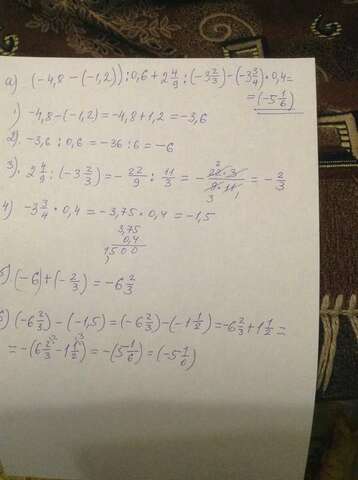 а) (-4,8 - (-1,2)) : 0,6 + 2 4/9 : (-3 2/3) - (-3 3/4) · 0,4 =
= (-5 1/6)
1) -4,8 - (-1,2) = -4,8 + 1,2 = -3,6
2). -3,6 : 0,6 = -36 : 6 = -6
3). 2 4/9 : (-3 2/3) = - 22/9 : 11/3 = - 22·3/9·11 = - 2/3
2
3 1
4) -3 3/4 · 0,4 = -3,75 · 0,4 = -1,5
3,75
0,4
1,500
5). (-6) + (-2/3) = -6 2/3
6) (-6 2/3) - (-1,5) = (-6 2/3) - (-1 1/2) = -6 2/3 + 1 1/2 =
= -(6 2/3 - 1 1/2) = -(5 1/6) = (-5 1/6)